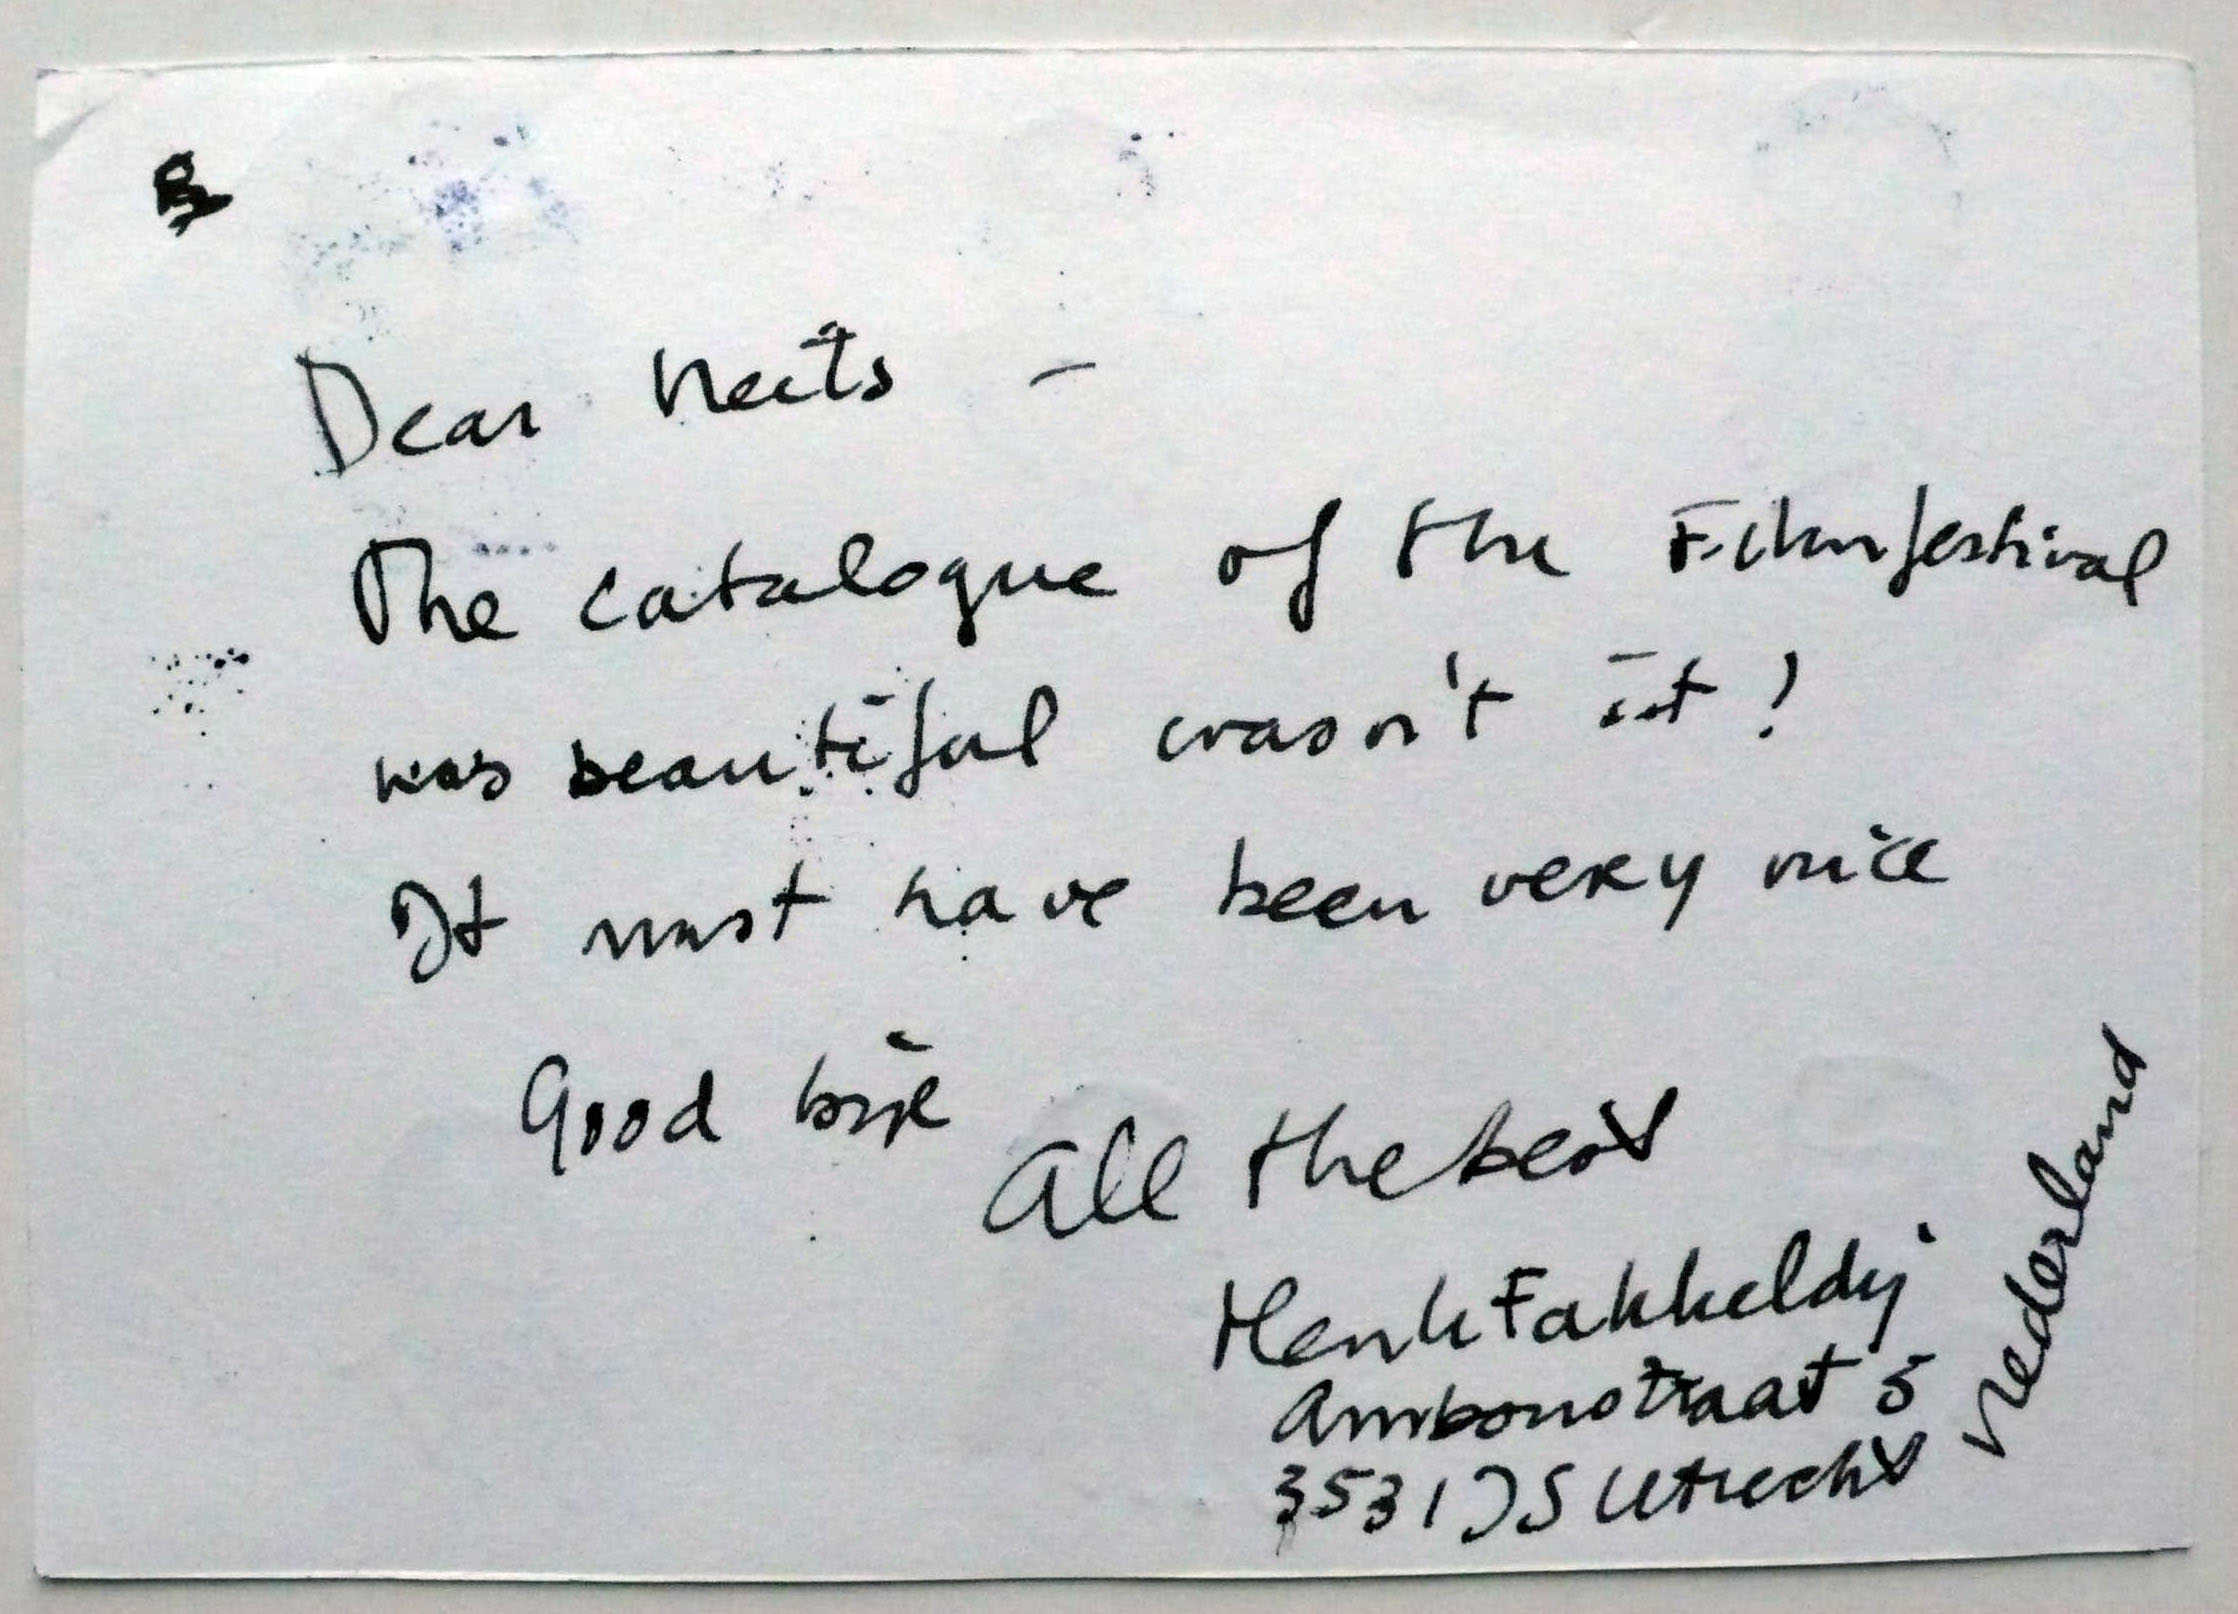 Dear
The catalogue of the Filmfestival
was beautiful wasn't it!
It must have been very nice
Good bije
All the best
Henk Fakkeldij
Ambonstraat 5
3531 JS Utrecht
Nederland